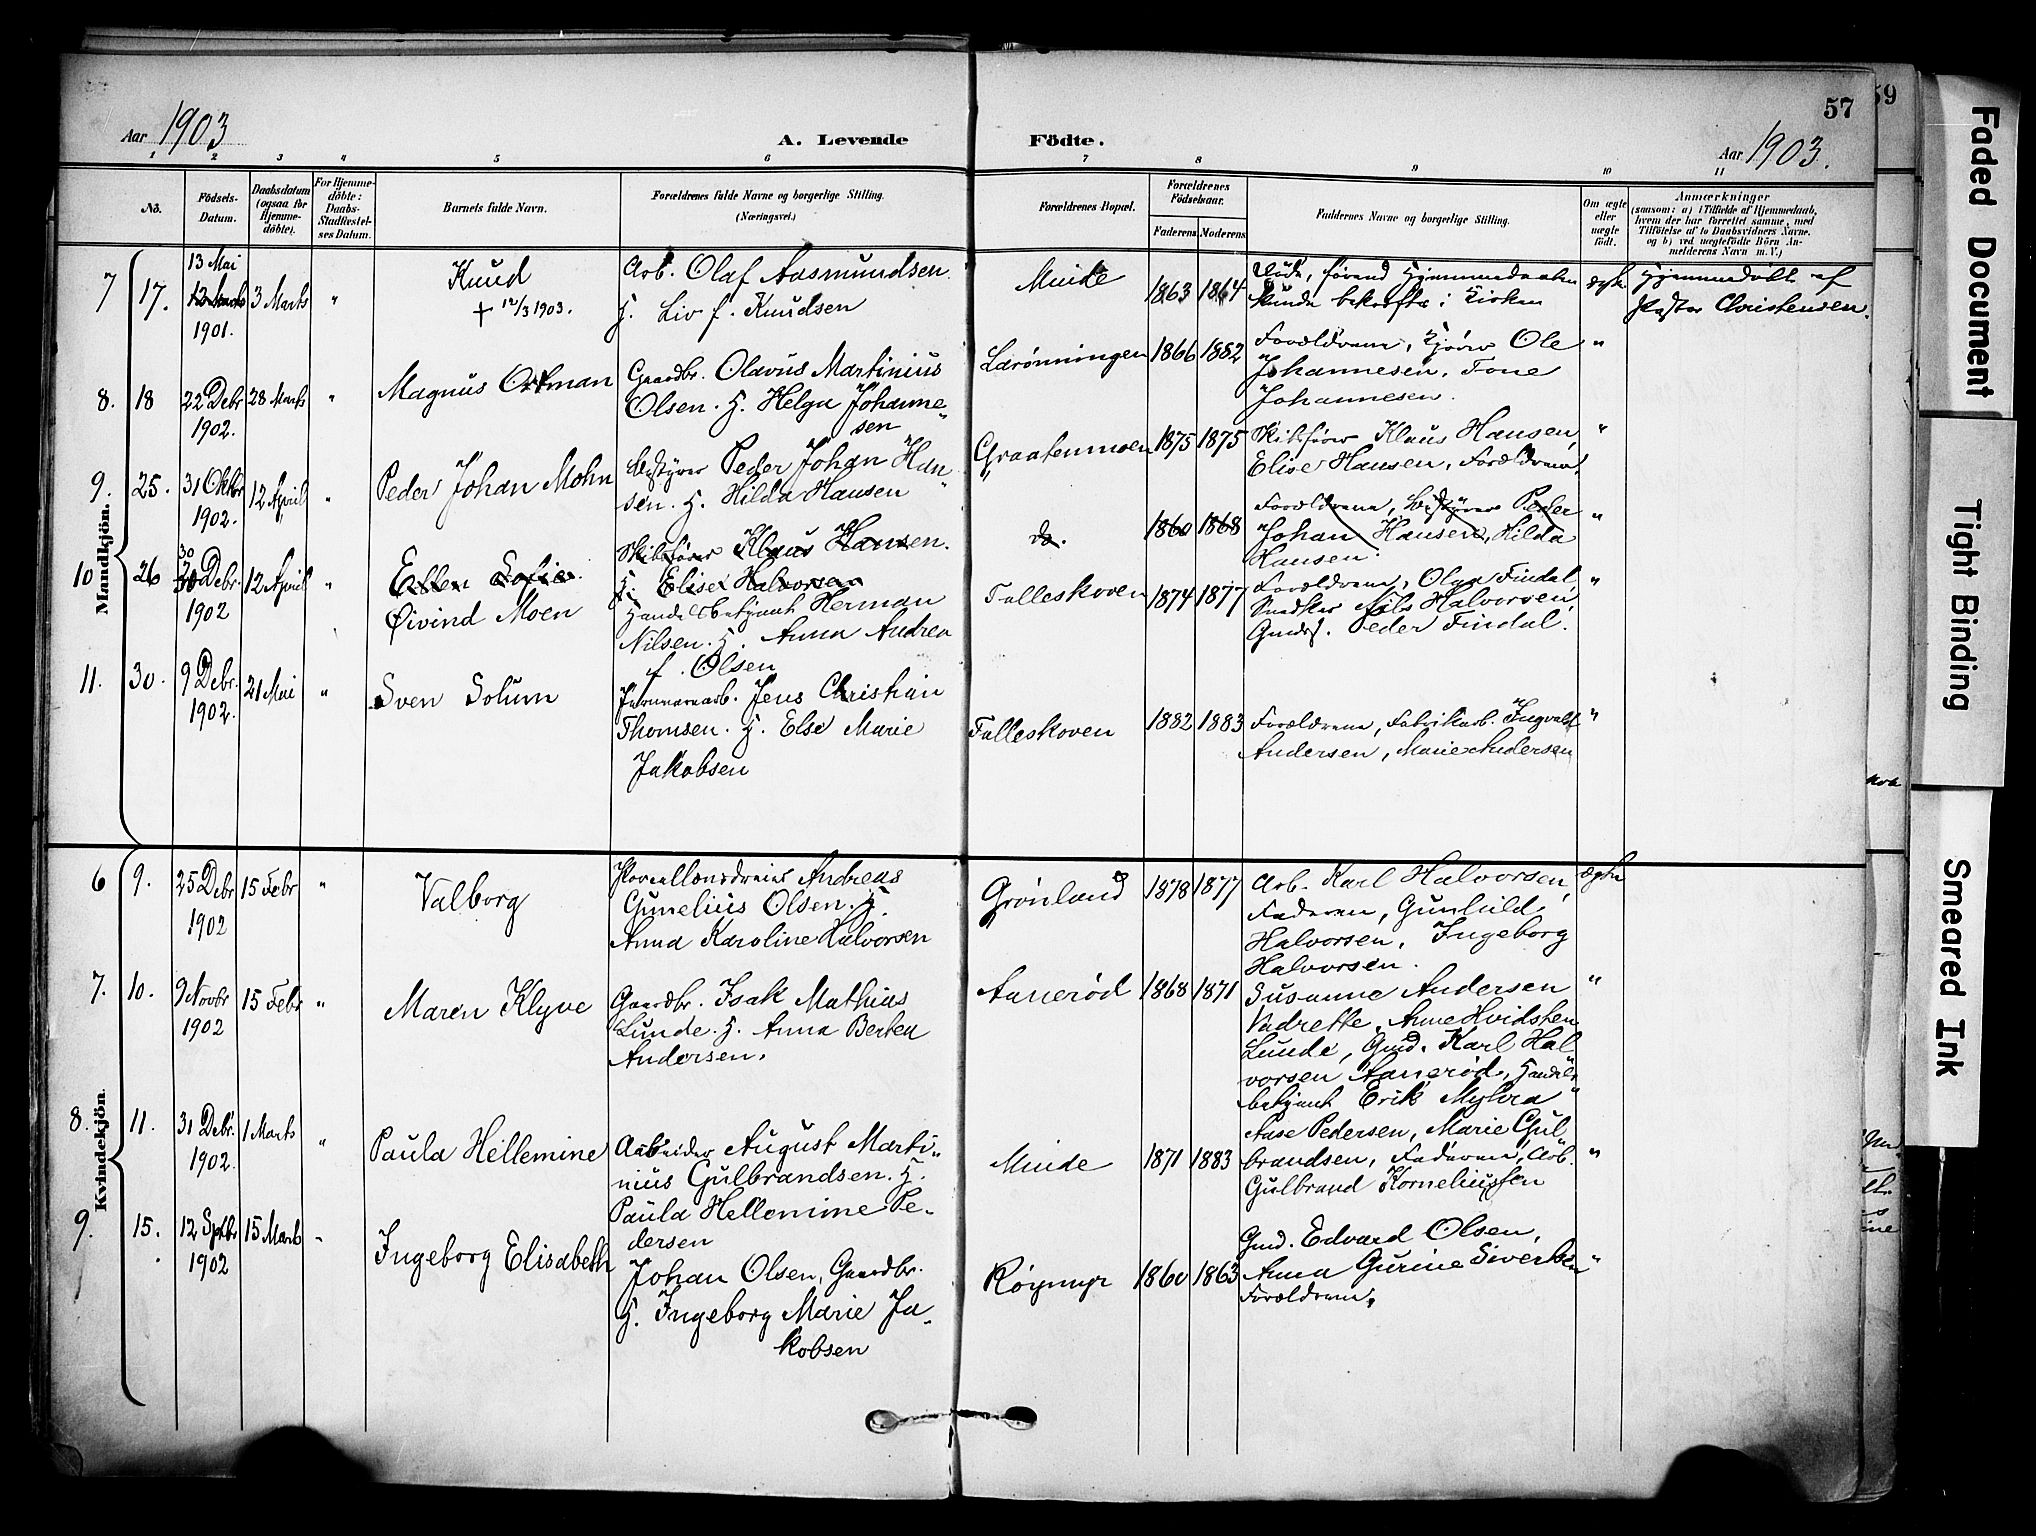 57
59
Aar 1903
A. Levende Födte.
Aar 1903.
1 2 3 4 5 6 7 8 9 10 11
No.
Födsels-Datum.
Daabsdatum (ogsaa for Hjemme-döbte).
For Hjemme-döbte: Daabs-Stadfæstel-ses Datum.
Barnets fulde Navn.
Forældrenes fulde Navne og borgerlige Stilling.
(Næringsvei.)
Forældrenes Bopæl.
Forældrenes Födselsaar.
Faderens Moderens
Faddernes Navne og borgerlige Stilling.
Om ægte eller uægte födt.
Anmærkninger
(saasom: a) i Tilfælde af Hjemmedaab,
hvem der har forrettet samme, med
Tilföielse af to Daabsvidners Navne.
og b) ved uægtefödte Börn An-
melderens Navn m. V.)
Mandkjön.
7 17. 13 Mai 13 Marts 1901. 3 Marts "
Knud
+ 12/3 1903.
Arb. Olaf Aasmundsen
H. Liv f. Knudsen
Minde 1863 1864
Døde, førend Hjemmedaaben
kunde bekræftes i Kirken
ægte
Hjemmedøbt af
Pastor Christensen.
8. 18 22 Debr 1902. 28 Marts "
Magnus Ortman
Gaardbr. Olavus Martinius
Olsen. H. Helga Johanne-
sen
Lærønningen 1866 1882
Forældrene, Ole
Johannesen, Tone
Johannesen.
"
9. 25. 31 Oktbr 1902. 12 April "
Peder Johan Mohn
Bestyrer Peder Johan Han-
sen. H. Hilda Hansen
Graatenmoen 1875 1875
Skibsfører Klaus Hansen,
Elise Hansen, Forældrene.
"
10 26 30 30 Debr. 1902 12 April "
Ellen Sofie.
Øivind Moen
Skibsfører Klaus Hansen.
H. Elise Halvorsen
Handelsbetjent Herman
Nilsen. H. Anna Andrea
f. Olsen
do. 1860 1868
Forældrene, Bestyrer Peder
Johan Hansen, Hilda
Hansen.
"
Falleskoven 1874 1877
Forældrene, Olga Findal,
Snedker Nils Halvorsen,
Gmds. Peder Findal.
"
11. 30. 9 Debr. 1902. 21 Mai "
Sven Solum
Jernvarearb. Jens Christian
Thomsen. H. Else Marie
Jakobsen
Falleskoven 1882 1883
Forældrene, Fabrikarb. Ingvald
Andersen, Marie Andersen
"
Kvindekjön.
6 9. 25 Debr 1902 15 Febr "
Valborg
Porcellænsdreier Andreas
Gunelius Olsen. H.
Anna Karoline Halvorsen
Grønland 1878 1877
Arb. Karl Halvorsen,
Faderen, Gunhild
Halvorsen, Ingeborg
Halvorsen.
ægte
7. 10. 9 Novbr 1902 15 Febr "
Maren Klyve
Gaardbr. Isak Mathias
Lunde. H. Anna Bertea
Andersen.
Aanerød 1868 1871
Susanne Andersen
Vadrette, Anne Hvidsten
Lunde, Gmd. Karl Hal-
vorsen Aanerød, Handels-
betjent Erik Myhra
"
8. 11. 31 Debr. 1902. 1 Marts "
Paula Hellemine
Arbeider August Marti-
nius Gulbrandsen. H.
Paula Hellemine Pe-
dersen
Minde 1871 1883
Aase Pedersen, Marie Gul-
brandsen, Faderen, Arb.
Gulbrand Korneliussen
"
9. 15. 12 Septbr 1902 15 Marts "
Ingeborg Elisabeth
Johan Olsen, Gaardbr.
H. Ingeborg Marie Ja-
kobsen
Røymyr 1860 1863
Gmd. Edvard Olsen,
Anna Gurine Sivertsen
Forældrene.
"
Faded Document
Tight Binding
Smeared Ink